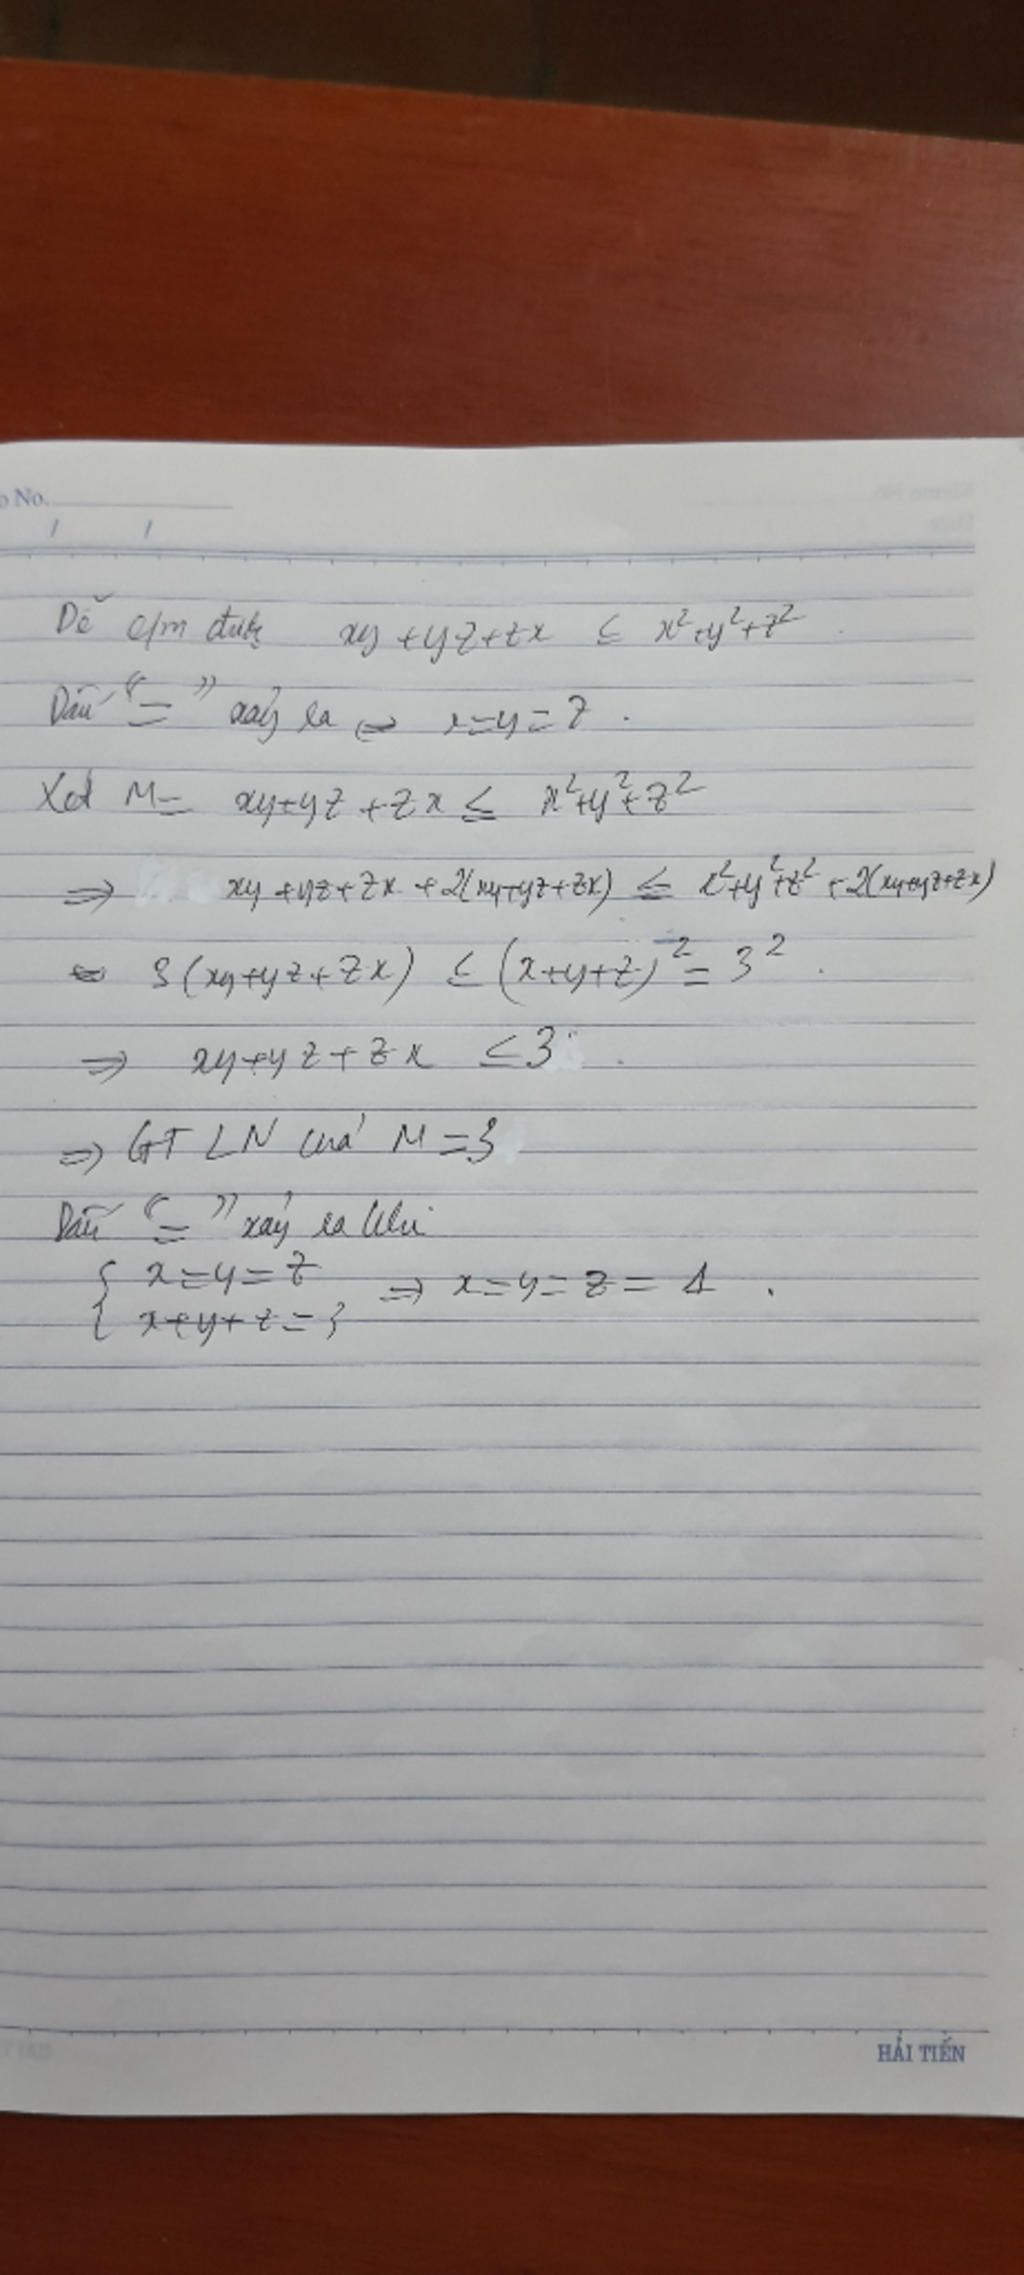 o No.
Dễ c/m được xy + yz + zx ≤ x²+y²+z²
Dấu "=" xảy ra ⇔ x=y=z.
Xét M= xy+yz+zx ≤ x²+y²+z²
⇒ xy+yz+zx+2(xy+yz+zx) ≤ x²+y²+z²+2(xy+yz+zx)
⇔ 3(xy+yz+zx) ≤ (x+y+z)² = 3².
⇒ xy+yz+zx ≤3.
⇒ GTLN của M =3
Dấu "=" xảy ra khi
{ x=y=z ⇒ x=y=z=1.
x+y+z=3
HẢI TIẾN